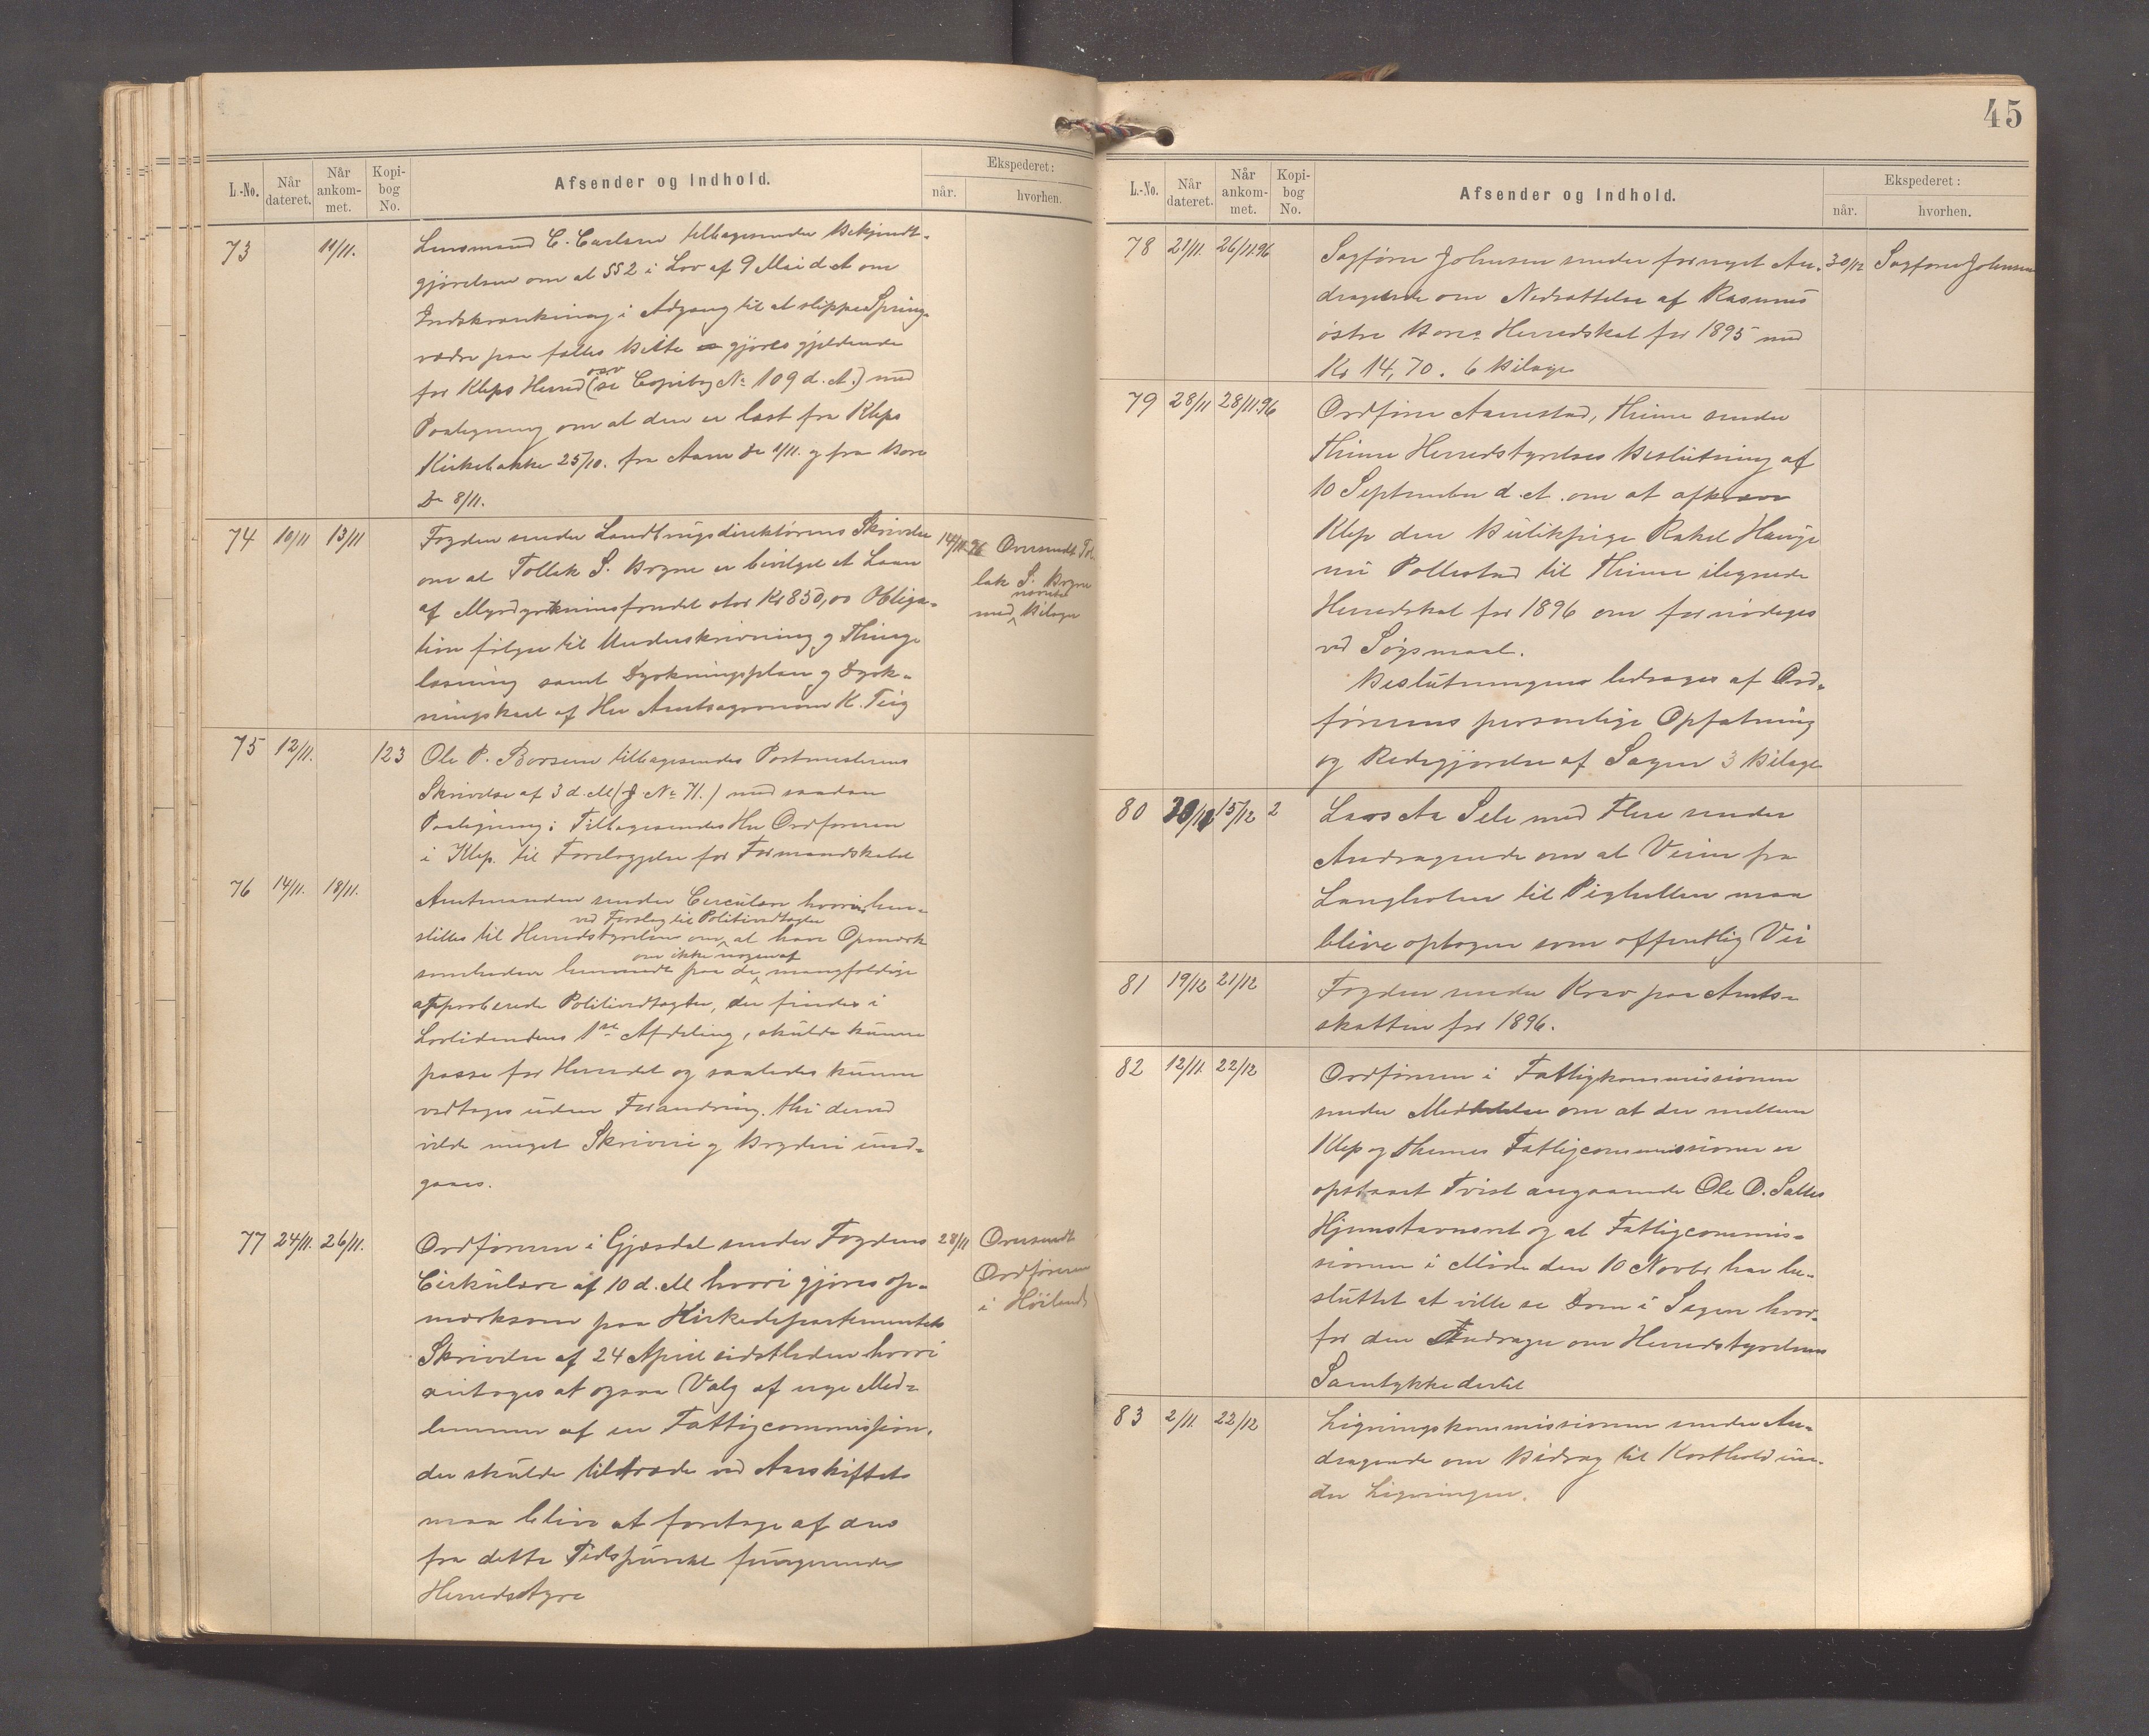 L.-No.
Når dateret.
Når ankommet.
Kopibog No.
Afsender og Indhold.
Ekspederet:
når.
hvorhen.
73 11/11. Lensmand C. Carlsen tilbagesender Bekjendt-
gjørelsen om at §§ 2 i Lov af 9 Mai d. A om
Indskrænkning i Adgang til at slippe Spring-
vædre paa fælles Beite gjøres gjældende
for Kleps Herred (se Copibog № 109 d. A.) med
osv
Paategning om at den er læst fra Kleps
Kirkebakke 25/10. fra Aam Do 1/11. og fra Bore
Do 8/11.
74 10/11 13/11 Fogden sender Landbrugsdirektørens Skrivelse 14/11 96 Oversendt Tol-
om at Tollak S. Bryne er bevilget et Laan lak S. Bryne
af Myrdyrkningsfondet stor Kr 850,00 Obliga- med nævnte Bilage
tion følger til Underskrivning og Thing-
læsning samt Dyrkningsplan og Dyrk-
ningskart af Hr Amtsagronom K. Teig
75 12/11. 123 Ole P. Borsem tilbagesendes Postmesterens
Skrivelse af 3 d. M (J. № 71.) med saadan
Paategning: Tilbagesendes Hr Ordføreren
i Klep. til Forelæggelse for Formandskabet
76 14/11. 18/11. Amtmanden sender Circulære hvori hen-
ved Forslag til Politivedtægter
stilles til Herredstyrelsen om at have Opmærk
om ikke nogen af
somheden henvendt paa de mangfoldige
approberede Politivedtægter, der findes i
Lovtidendens 1ste Afdeling, skulde kunne
passe for Herredet og saaledes kunne
vedtages uden Forandring. thi derved
vilde meget Skriveri og Bryderi und-
gaaes.
77 24/11. 26/11. Ordføreren i Gjæsdal sender Fogdens 28/11 Oversendt
Cirkulære af 10 d. M hvori gjøres op- Ordføreren
mærksom paa Kirkedepartementets i Høilands
Skrivelse af 24 April sidstleden hvori
antages at ogsaa Valg af nye Med-
lemmer af en Fattigcommission,
der skulde tiltræde ved Aarsskiftet
maa blive at foretage af det
fra dette Tidspunkt fungerende
Herredsstyre
45
L.-No.
Når dateret.
Når ankommet.
Kopibog No.
Afsender og Indhold.
Ekspederet:
når.
hvorhen.
78 21/11. 26/11.96 Sagfører Johnsen sender fornyet An- 30/12 Sagfører Johnsen
dragende om Nedsættelse af Rasmus
østre Bores Herredskat for 1895 med
Kr 14,70. 6 Bilage
79 28/11 28/11.96 Ordfører Aarrestad, Thime sender
Thime Herredstyrelses Beslutning af
10 September d. A. om at afkræve
Klep den Butikpige Rakel Hauge
nu Pollestad til Thime ilignede
Herredskat for 1896 om fornødiges
ved Søgsmaal.
Beslutningen ledsages af Ord-
førerens personlige Opfatning
og Redegjørelse af Sagen 3 Bilage
80 30/11 15/12 2 Lars Aa Sele med Flere sender
Andragende om at Veien fra
Langholen til Pighellen maa
blive optagen som offentlig Vei
81 19/12 21/12 Fogden sender Krav paa Amts-
skatten for 1896.
82 12/11. 22/12 Ordføreren i Fattigkommissionen
sender Meddelelse om at der mellem
Klep og Thimes Fattigcommissioner er
opstaaet Tvist angaaende Ole O. Saltes
Hjemstavnsret og at Fattigcommis-
sionen i Møde den 10 Novbr har be-
sluttet at ville se Dom i Sagen hvor-
for den Andrager om Herredstyrelsens
Samtykke dertil
83 2/11. 22/12 Ligningskommissionen sender An-
dragende om Bidrag til Kosthold un-
der Ligningen.